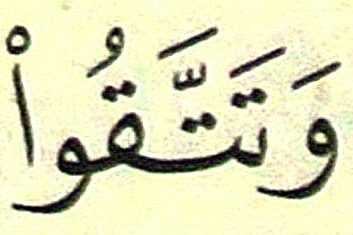 وَتَتَّقُوا۟